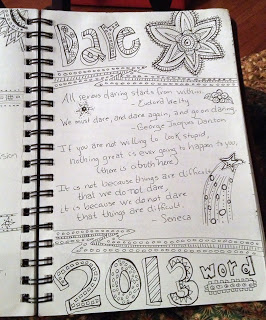 Dare
All serious daring starts from within.
- Eudora Welty
We must dare, and dare again, and go on daring
- George Jacques Danton
If you are not willing to look stupid,
nothing great is ever going to happen to you,
(there is truth here)
It is not because things are difficult
that we do not dare,
it is because we do not dare
that things are difficult.
- Seneca
2013 word